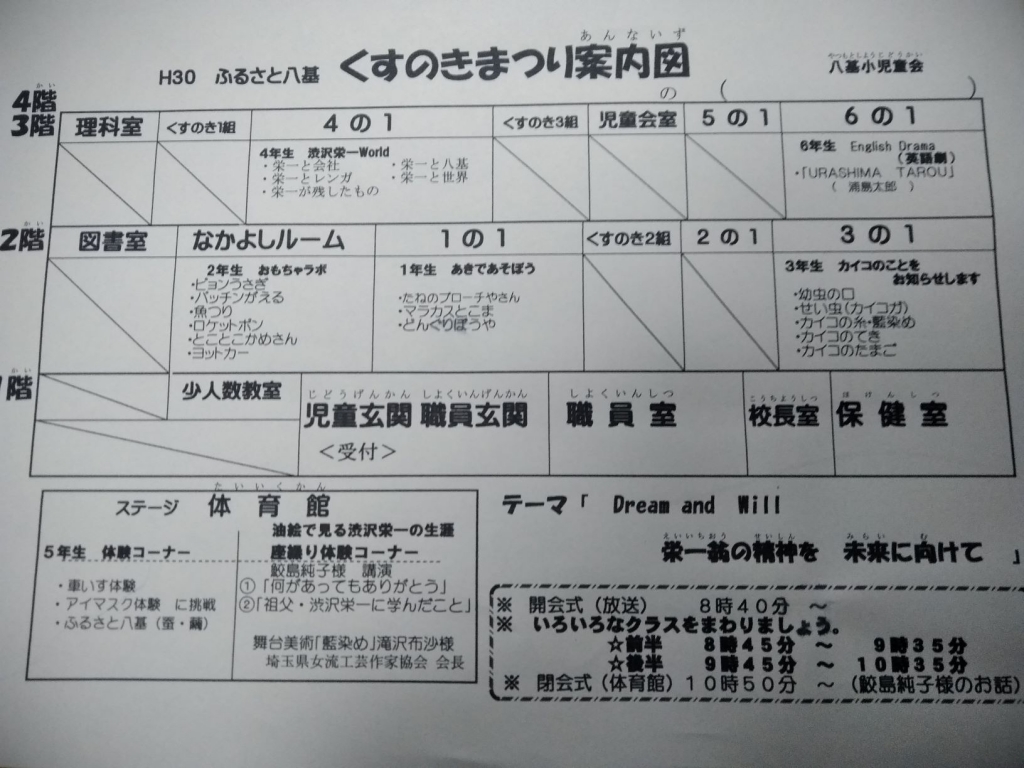 あんないず
H30 ふるさと八基 くすのきまつり案内図
やつもとしょうじどうかい
八基小児童会
の ( )
かい
4階
3階 理科室 くすのき1組 4の1 くすのき3組 児童会室 5の1 6の1
4年生 渋沢栄一World
・栄一と会社 ・栄一と八基
・栄一とレンガ ・栄一と世界
・栄一が残したもの
6年生 English Drama
(英語劇)
・「URASHIMA TAROU」
( 浦島太郎 )
かい
2階 図書室 なかよしルーム 1の1 くすのき2組 2の1 3の1
2年生 おもちゃラボ
・ピョンうさぎ
・パッチンがえる
・魚つり
・ロケットポン
・とことこかめさん
・ヨットカー
1年生 あきであそぼう
・たねのブローチやさん
・マラカスとこま
・どんぐりぼうや
3年生 カイコのことを
お知らせします
・幼虫の口
・せい虫(カイコガ)
・カイコの糸・藍染め
・カイコのてき
・カイコのたまご
かい
階 少人数教室
じどうげんかん しよくいんげんかん
児童玄関 職員玄関
<受付>
しよくいんしつ
職員室
こうちようしつ
校長室
ほけんしつ
保健室
たいいくかん
ステージ 体育館
油絵で見る渋沢栄一の生涯
5年生 体験コーナー
・車いす体験
・アイマスク体験 に挑戦
・ふるさと八基(蚕・繭)
座繰り体験コーナー
鮫島純子様 講演
①「何があってもありがとう」
②「祖父・渋沢栄一に学んだこと」
舞台美術「藍染め」滝沢布沙様
埼玉県女流工芸作家協会 会長
テーマ「 Dream and Will
えいいちおう せいしん みらい む
栄一翁の精神を 未来に向けて 」
※ 開会式(放送) 8時40分 ～
※ いろいろなクラスをまわりましょう。
☆前半 8時45分 ～ 9時35分
☆後半 9時45分 ～ 10時35分
※ 閉会式(体育館)10時50分 ～ (鮫島純子様のお話)